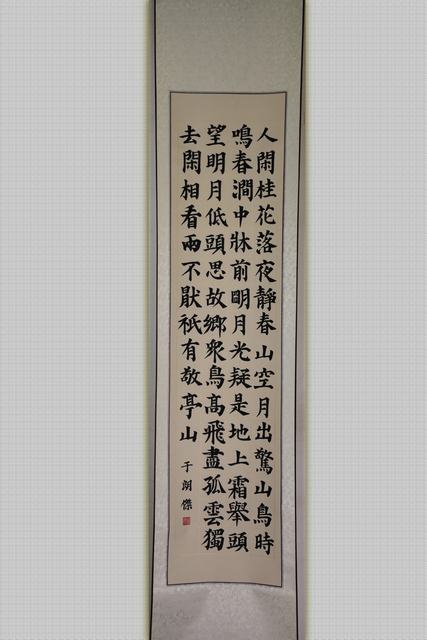 人閑桂花落夜靜春山空月出驚山鳥時
鳴春澗中牀前明月光疑是地上霜舉頭
望明月低頭思故鄉衆鳥高飛盡孤雲獨
去閑相看兩不厭祇有敬亭山
于朔傑